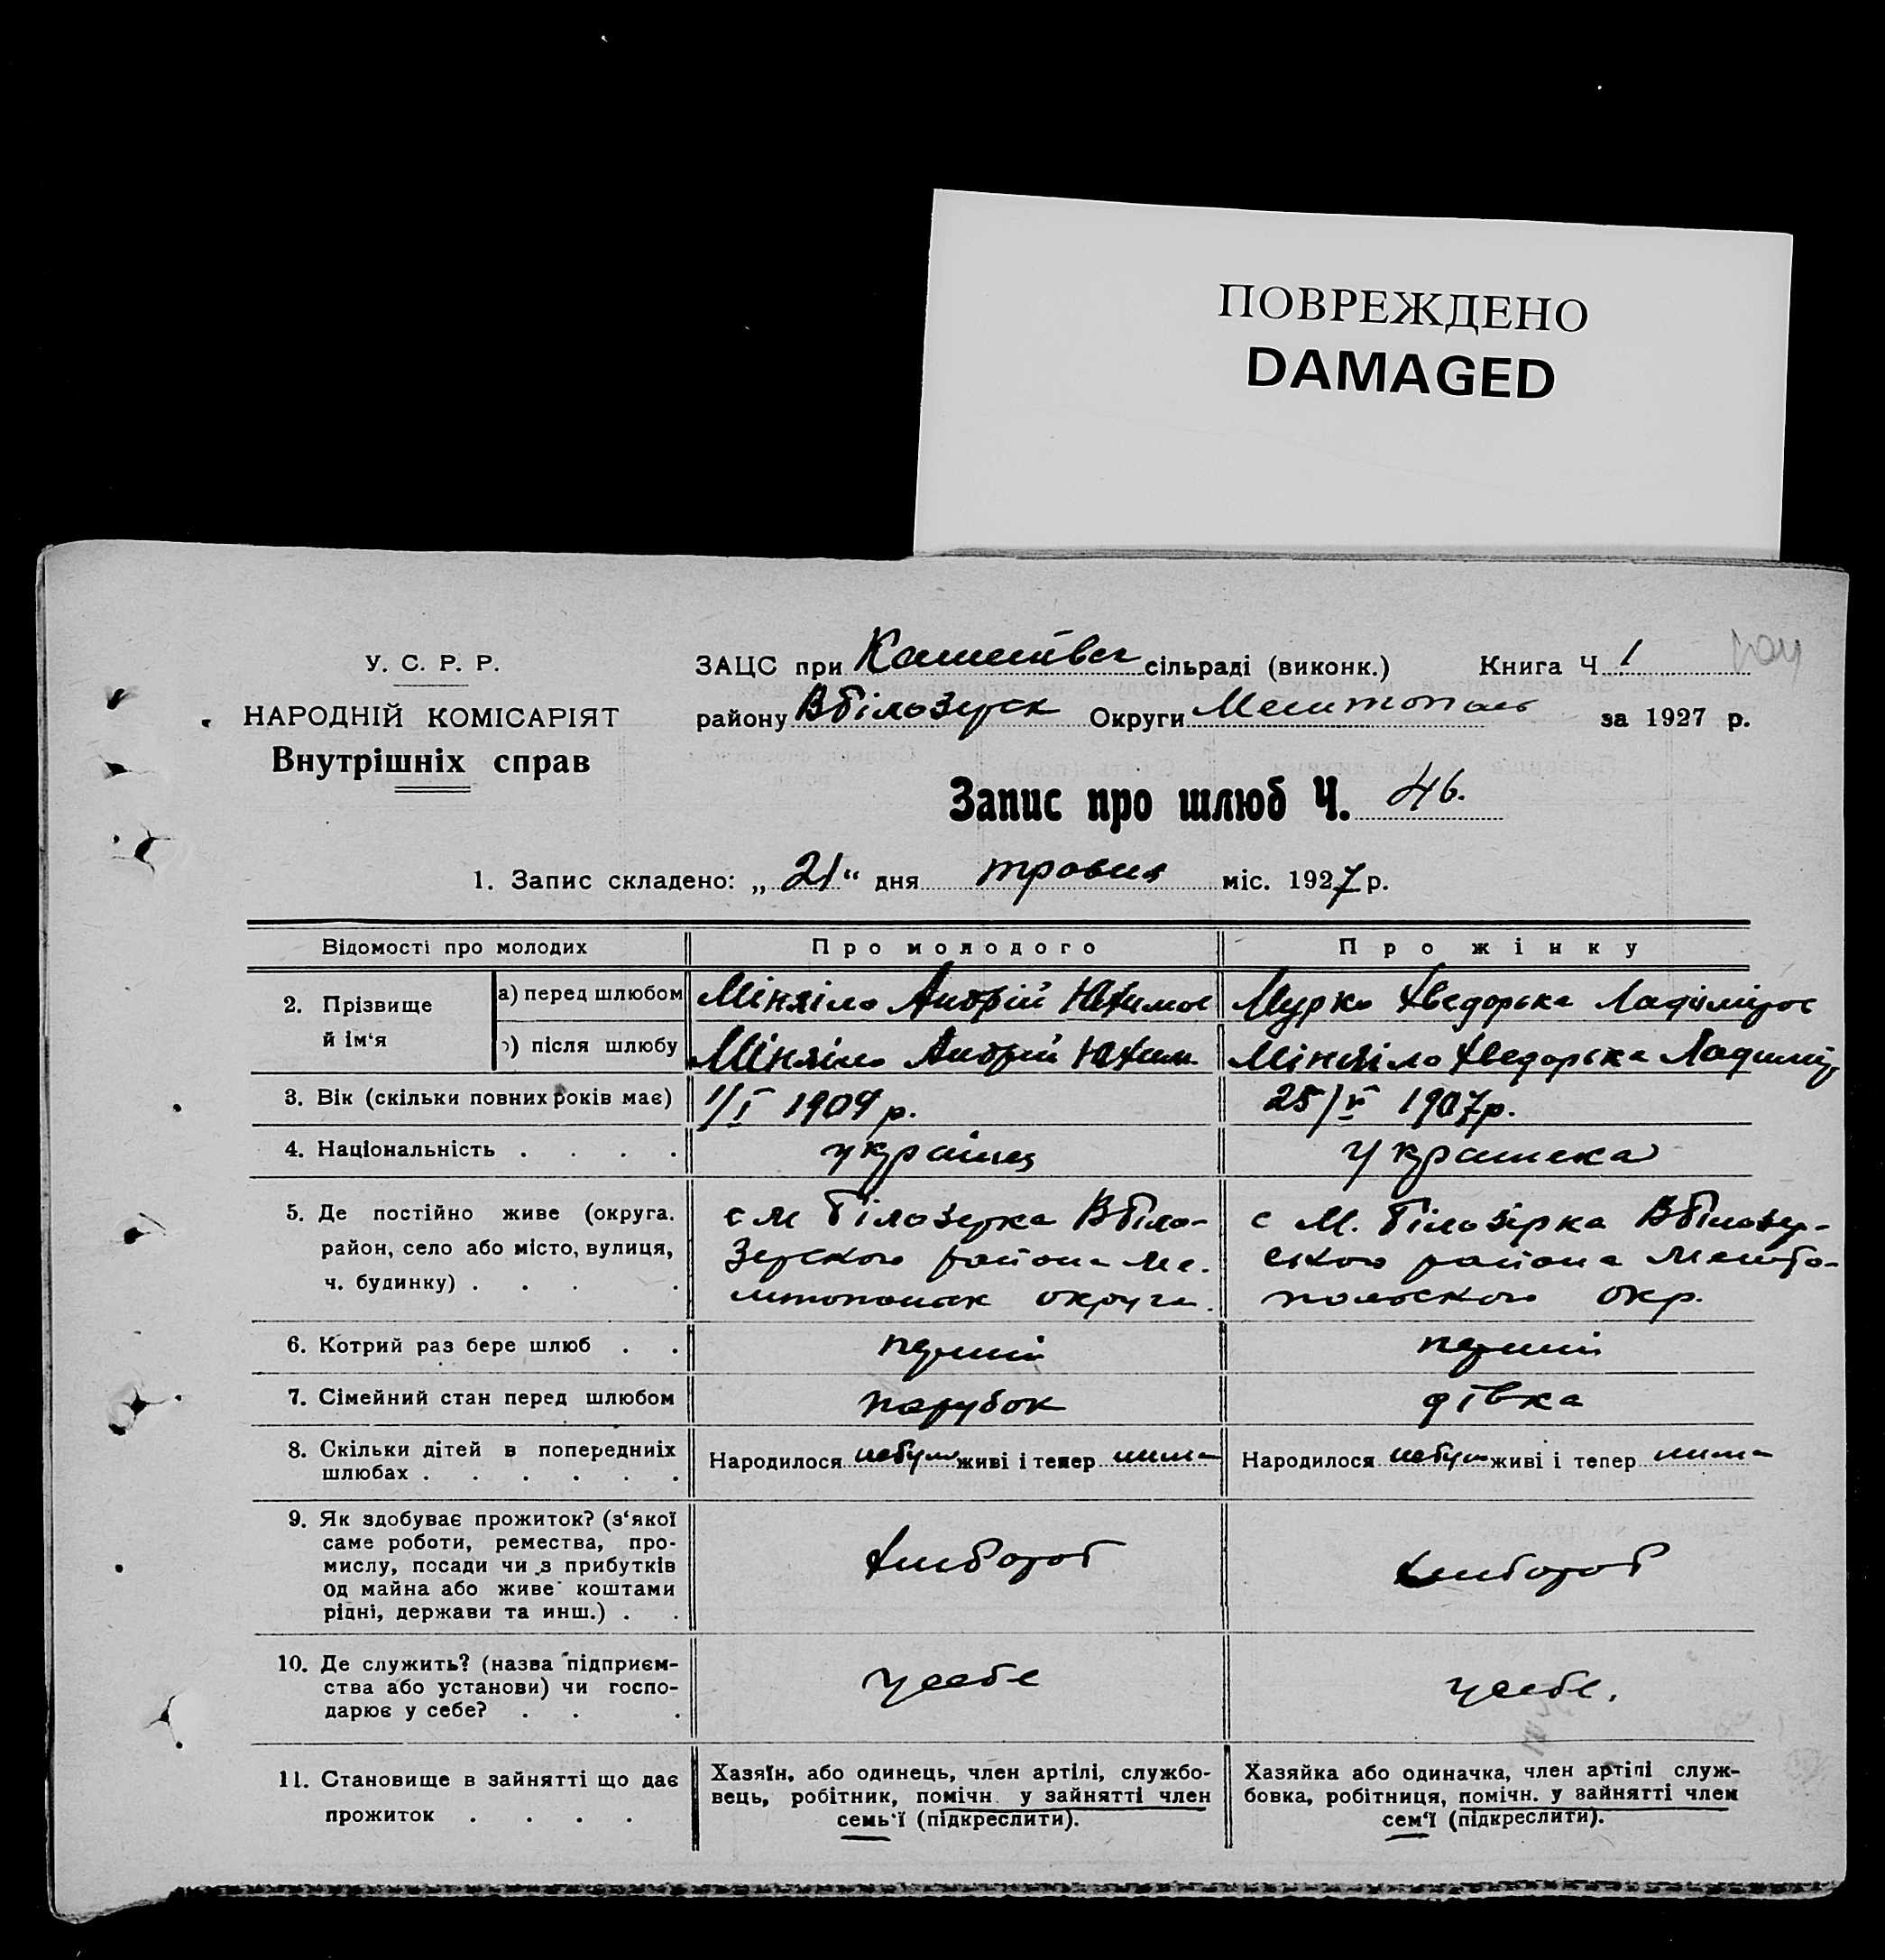 ПОВРЕЖДЕНО
DAMAGED
У. С. Р. Р.
НАРОДНІЙ КОМІСАРІЯТ
Внутрішніх справ
ЗАЦС при сільраді (виконк.) Книга Ч. 1
району Вбілозерск Округи Мелитополь за 1927 р.
Запис про шлюб Ч. 46.
1. Запис складено: „21“ дня травня міс. 1927 р.
Відомості про молодих Про молодого Про жінку
2. Прізвище й ім‘я
а) перед шлюбом Міняіло Андрій Юхимов Мурко Хведорька
) після шлюбу Міняіло Андрій Юхим Міняіло Хведорька
3. Вік (скільки повних років має) 1/I 1909 р. 25/V 1907р.
4. Національність . . . . українец українка
5. Де постійно живе (округа. с М Білозерка Вбіло- с М. Білозірка Вбілозер-
район, село або місто, вулиця, зерского района Ме- ського района Мелито-
ч. будинку) . . . . литопольск округа. польского окр.
6. Котрий раз бере шлюб . . перший перший
7. Сімейний стан перед шлюбом парубок дівка
8. Скільки дітей в попередниіх
шлюбах . . . . . .
Народилося небуло живі і тепер нима Народилося небуло живі і тепер нима
9. Як здобуває прожиток? (з‘якої
саме роботи, ремества, про-
мислу, посади чи з прибутків
од майна або живе коштами
рідні, держави та инш.) . .
хлибороб хлибороб
10. Де служить? (назва підприєм-
ства або установи) чи госпо-
дарює у себе? . . .
у себе у себе.
11. Становище в зайнятті що дає
прожиток . . . .
Хазяїн, або одинець, член артілі, службо-
вець, робітник, помічн. у зайнятті член
семь‘ї (підкреслити).
Хазяйка або одиначка, член артілі служ-
бовка, робітниця, помічн. у зайнятті член
сем‘ї (підкреслити).